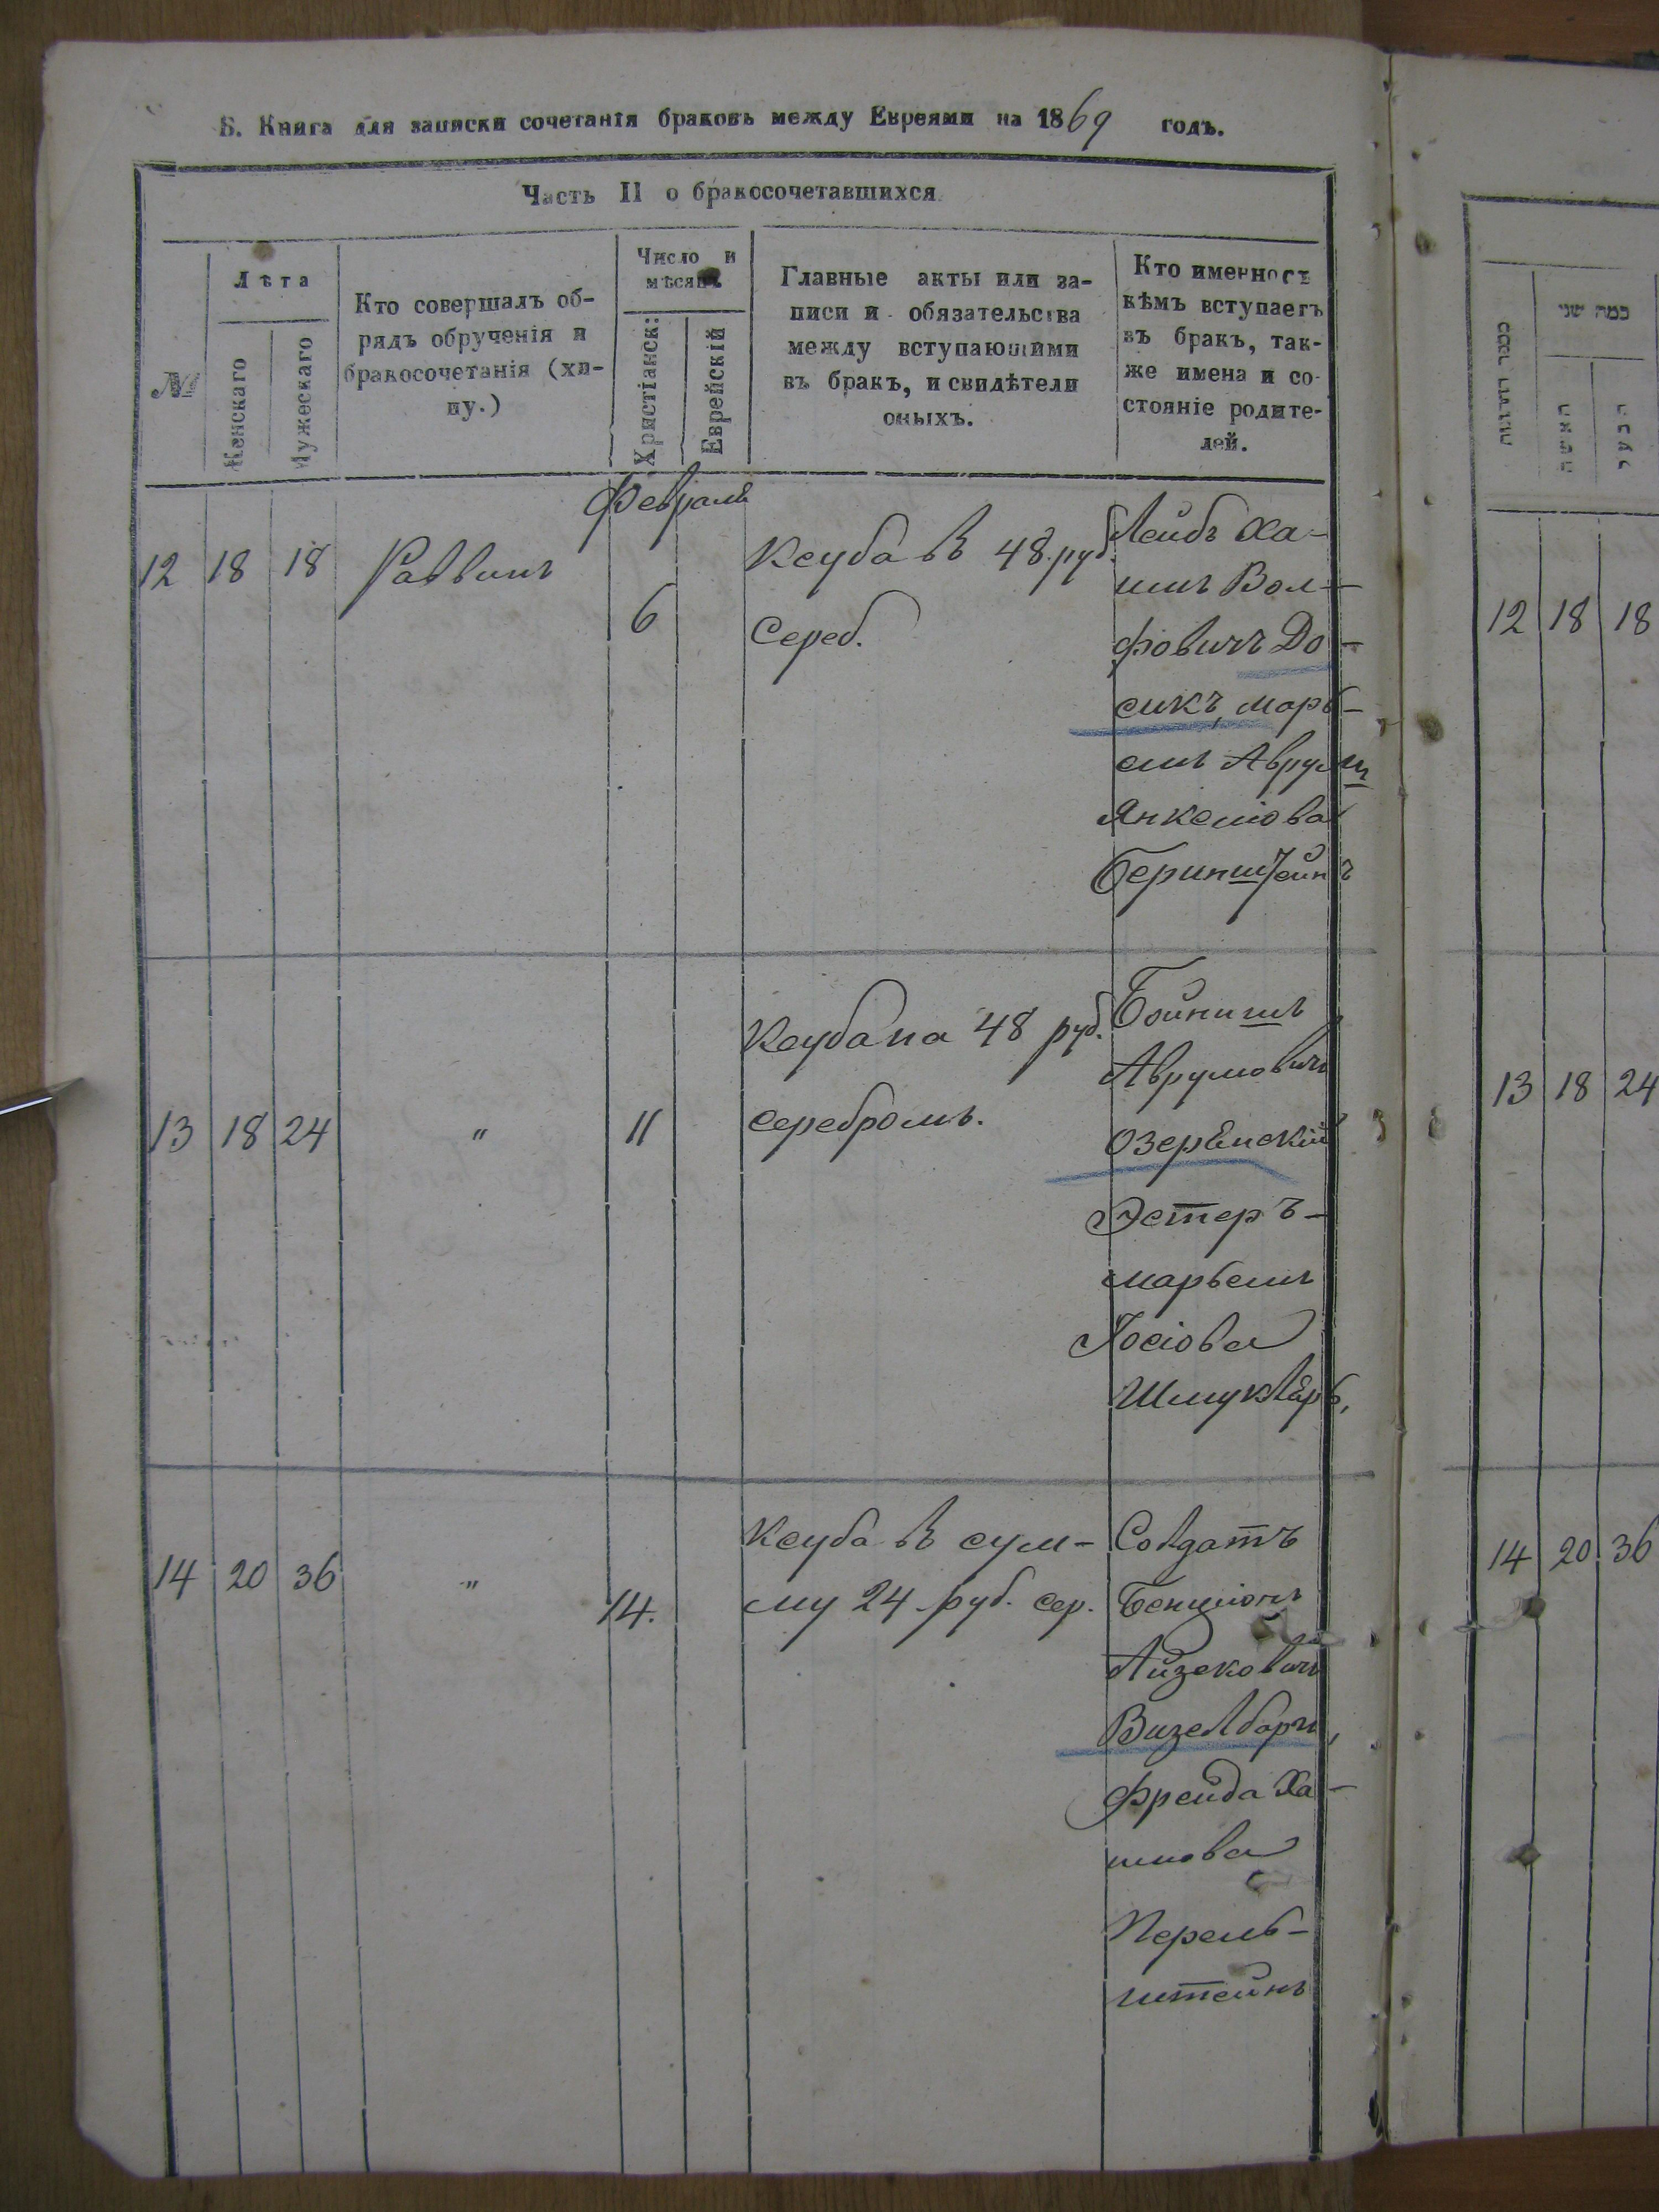 Б. Книга для записки сочетанія браковъ между Евреями на 1869 годъ.
Часть II о бракосочетавшихся.
№
Лѣта
Женскаго
Мужескаго
Кто совершалъ об-
рядъ обрученія и
бракосочетанія (хи-
пу.)
Число и
мѣсяцъ
Христіанск:
Еврейскій
Главные акты или за-
писи и обязательства
между вступающими
въ бракъ, и свидѣтели
оныхъ.
Кто именно съ
кѣмъ вступаетъ
въ бракъ, так-
же имена и со-
стояніе родите-
лей.
Февраль
12 18 18 Раввинъ
6
Ксуба въ 48 руб.
Сереб.
Лейбъ Ха-
имъ Вол-
фовичъ До-
сикъ, марь-
емъ Аврумъ
Янкеліова
Беринштейнъ
13 18 24 " 11
Ксуба на 48 руб.
серебромъ.
Бойнишъ
Аврумовичъ
Озеренскій
Эстеръ-
марьемъ
Іосіова
Шмуклеръ,
14 20 36 " 14.
Ксуба въ сум-
му 24 руб. сер.
Солдатъ
Бенціонъ
Айзековичъ
Визелбаргъ,
Фрейда Ха-
имова
Перель-
штейнъ
כמה שני
האשה
הבעל
12 18 18
13 18 24
14 20 36